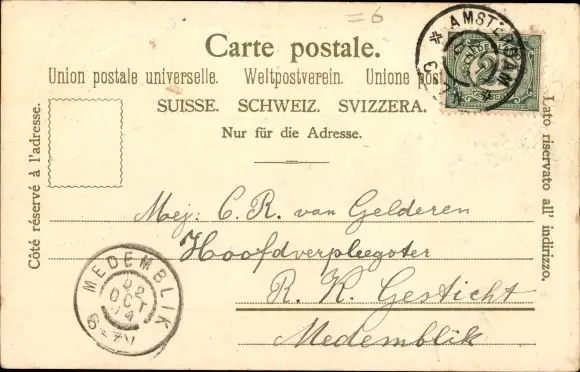 =6
Carte postale.
Union postale universelle. Weltpostverein. Unione
SUISSE. SCHWEIZ. SVIZZERA.
Nur für die Adresse.
Côté réservé à l'adresse.
Lato riservato all' indirizzo.
AMSTERDAM
2½
Mej: C. R. van Gelderen
Hoofdverpleegster
R. K. Gesticht
Medemblik
MEDEMBLIK
22
OCT
04